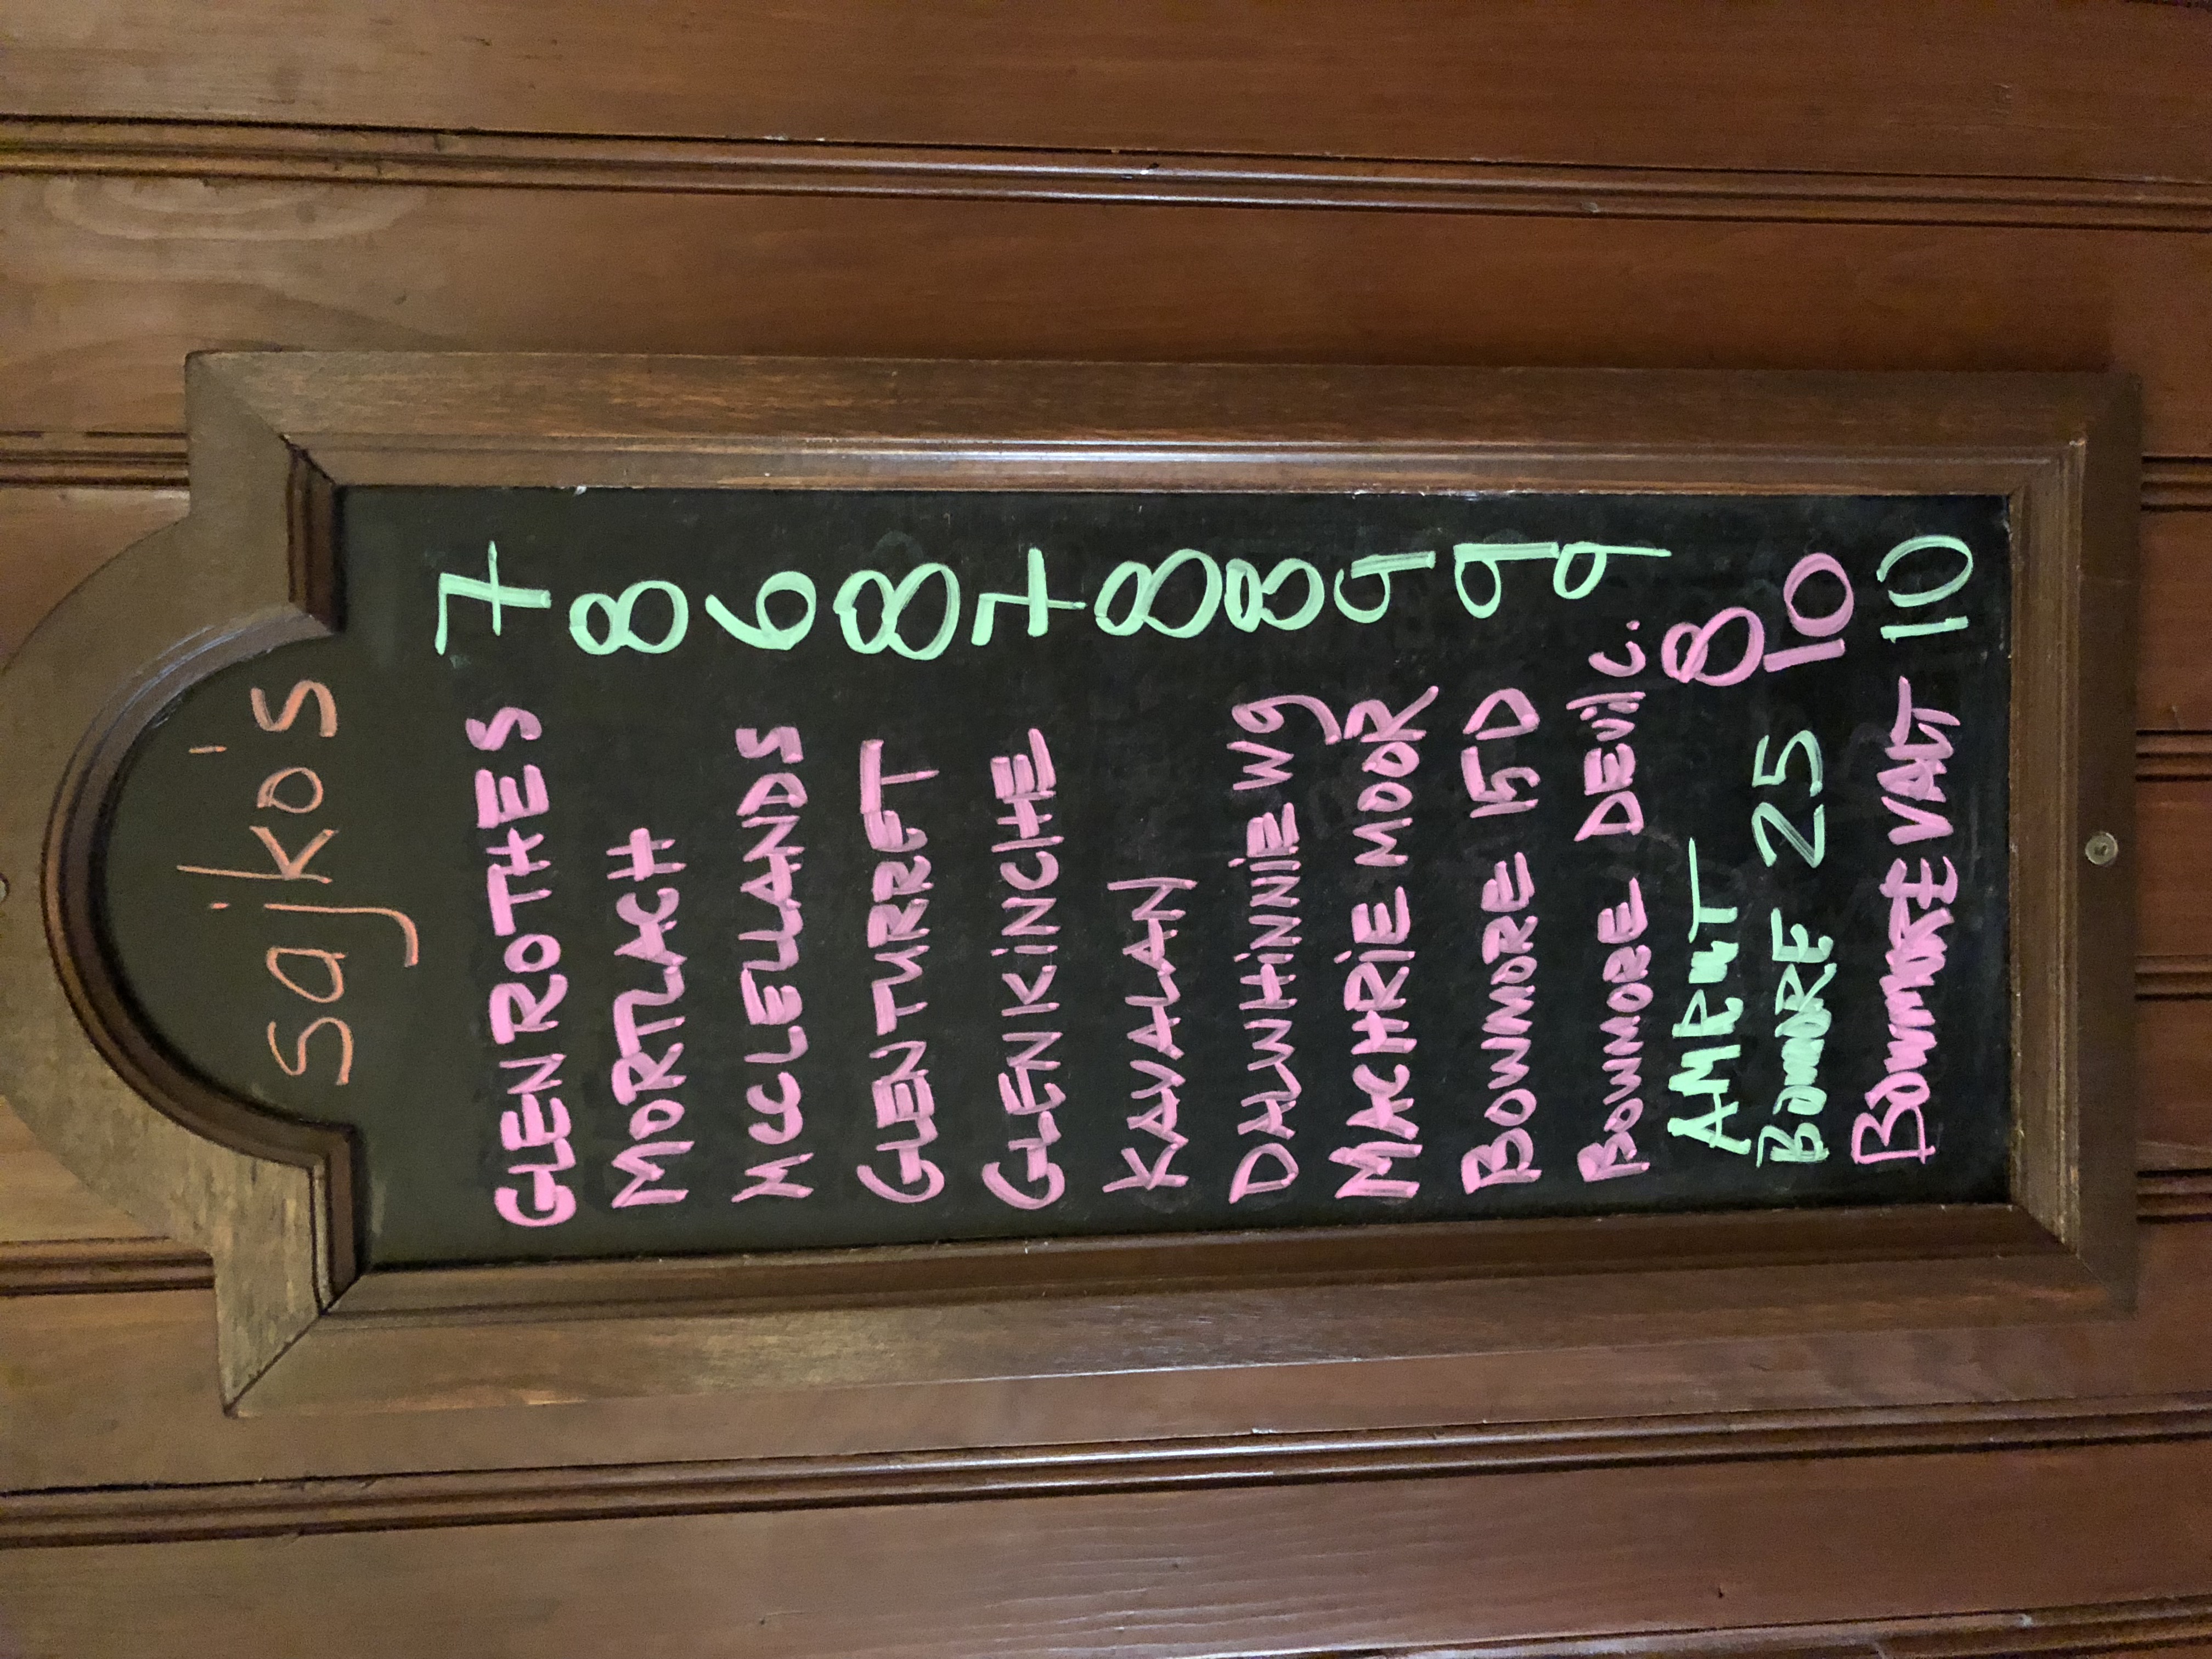 sajko's
GLEN ROTHES 7
MORTLACH 8
MCCLELLANDS 6
GLEN TURRET 8
GLEN KINCHE 7
KAVALAN 8
DALWHINNIE WG 8
MACHRIE MOOR 9
BOWMORE 15D 9
BOWMORE DEVIL C. 9
AMRUT 8
BOWMORE 25 10
BOWMORE VALT 10